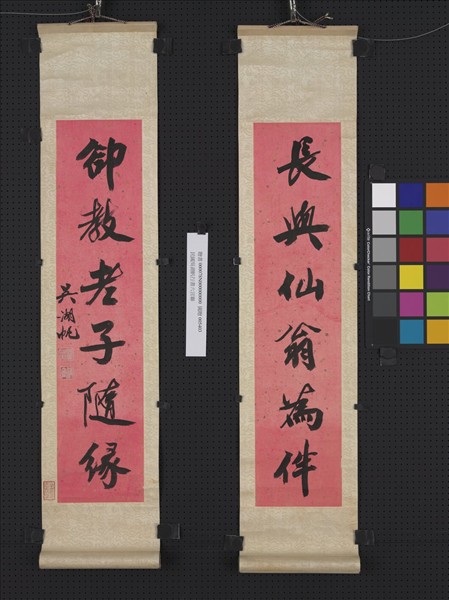 長與仙翁為伴
卻教老子隨緣
吳湖帆